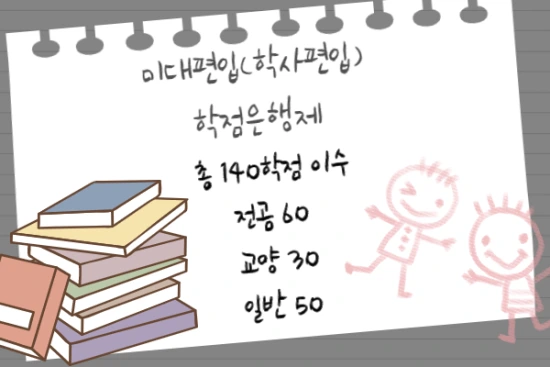 미대편입(학사편입)
학점은행제
총 140학점 이수
전공 60
교양 30
일반 50